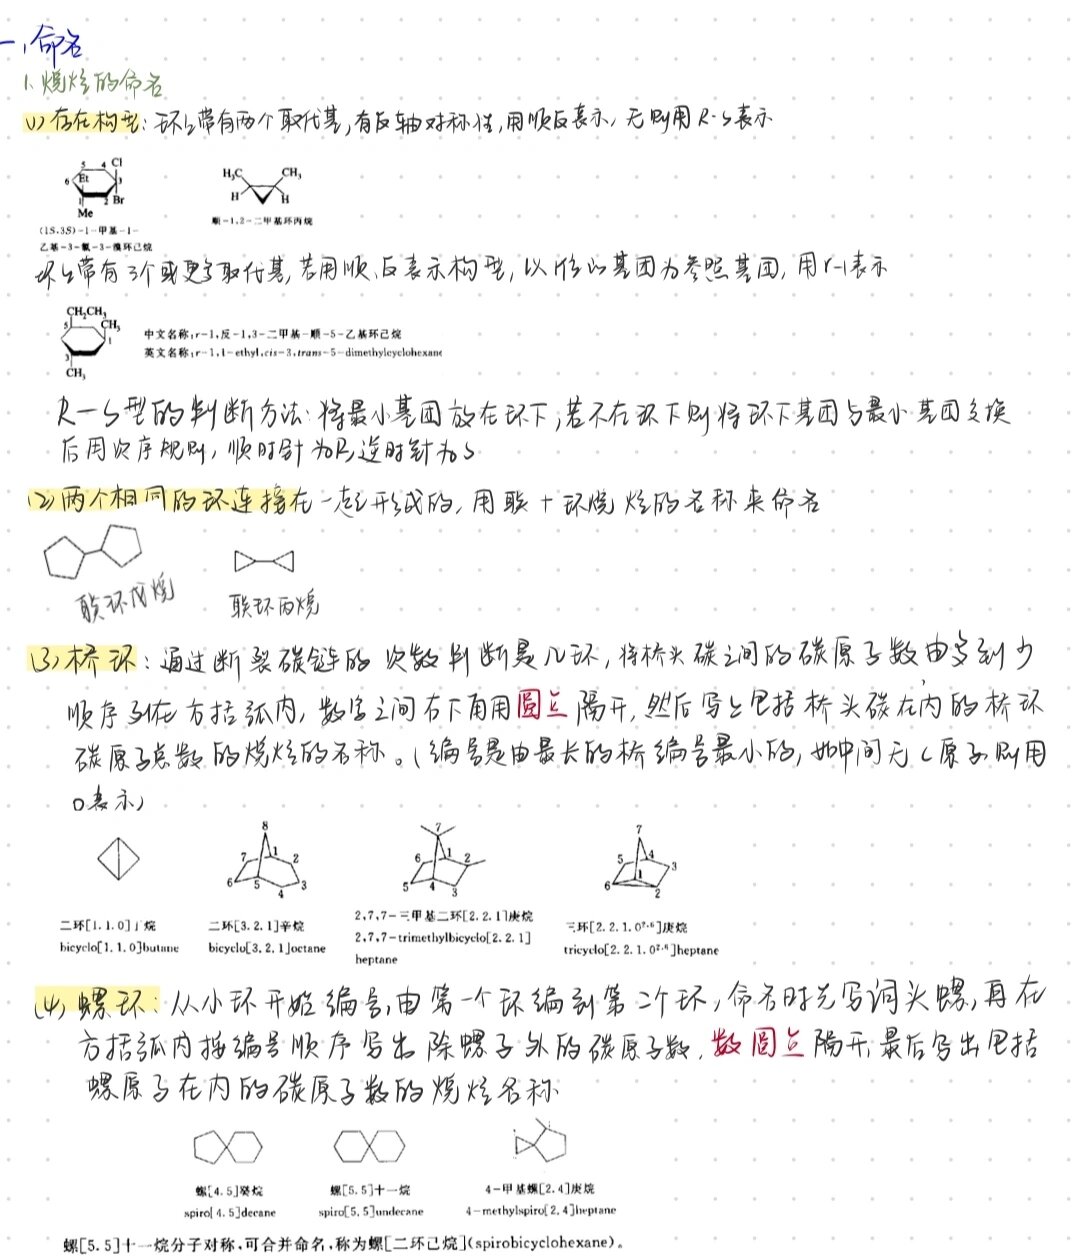 一、命名
1.烷烃的命名
(1)存在构型:环上带有两个取代基,有反轴对称性,用顺反表示,无则用R-S表示
5 4 Cl
6 Et 3
1 2 Br
Me
(1S,3S)-1-甲基-1-
乙基-3-氯-3-溴环己烷
H₃C CH₃
H H
顺-1,2-二甲基环丙烷
环上带有3个或更多取代基,若用顺、反表示构型,以1位的基团为参照基团,用r-1表示
CH₂CH₃
5 CH₃
1
3
CH₃
中文名称:r-1,反-1,3-二甲基-顺-5-乙基环己烷
英文名称:r-1,1-ethyl,cis-3,trans-5-dimethylcyclohexane
R-S型的判断方法:将最小基团放在环下,若不在环下则将环下基团与最小基团交换
后用次序规则,顺时针为R,逆时针为S
(2)两个相同的环连接在一起形成的,用联+环烷烃的名称来命名
联环戊烷 联环丙烷
(3)桥环:通过断裂碳链的次数判断是几环,将桥头碳之间的碳原子数由多到少
顺序列在方括弧内,数字之间右下角用圆点隔开,然后写上包括桥头碳在内的桥环
碳原子总数的烷烃的名称。(编号是由最长的桥编号最小的,如中间无C原子则用
0表示)
8
7 1 2
6 5 3
4
7
6 1 2
5 4 3
7
5 4 3
6 1 2
二环[1.1.0]丁烷
bicyclo[1.1.0]butane
二环[3.2.1]辛烷
bicyclo[3.2.1]octane
2,7,7-三甲基二环[2.2.1]庚烷
2,7,7-trimethylbicyclo[2.2.1]
heptane
三环[2.2.1.0²·⁶]庚烷
tricyclo[2.2.1.0²·⁶]heptane
(4)螺环:从小环开始编号,由第一个环编到第二个环,命名时先写词头螺,再在
方括弧内按编号顺序写出除螺子外的碳原子数,数圆点隔开,最后写出包括
螺原子在内的碳原子数的烷烃名称
螺[4.5]癸烷
spiro[4.5]decane
螺[5.5]十一烷
spiro[5.5]undecane
4-甲基螺[2.4]庚烷
4-methylspiro[2.4]heptane
螺[5.5]十一烷分子对称,可合并命名,称为螺[二环己烷](spirobicyclohexane)。